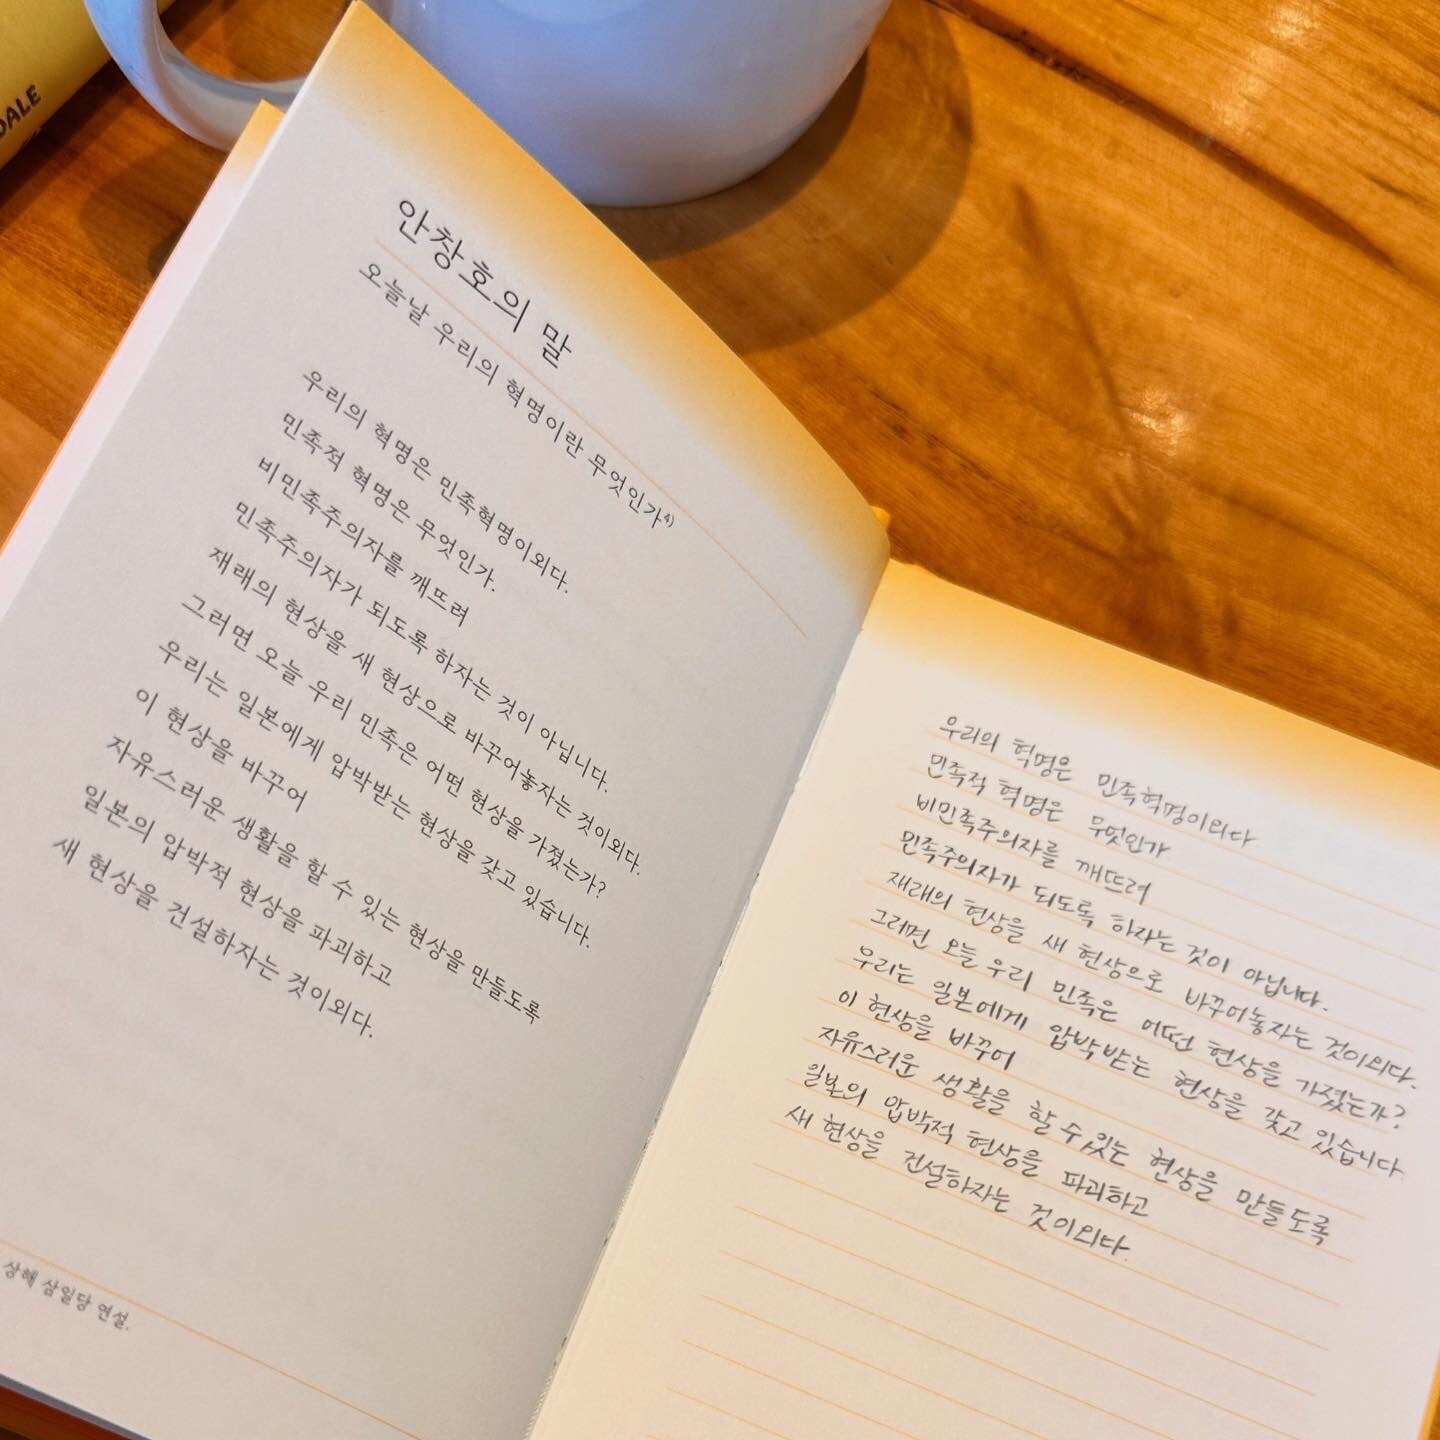 DALE
안창호의 말
오늘날 우리의 혁명이란 무엇인가4)
우리의 혁명은 민족혁명이외다.
민족적 혁명은 무엇인가.
비민족주의자를 깨뜨려
민족주의자가 되도록 하자는 것이 아닙니다.
재래의 현상을 새 현상으로 바꾸어놓자는 것이외다.
그러면 오늘 우리 민족은 어떤 현상을 가졌는가?
우리는 일본에게 압박받는 현상을 갖고 있습니다.
이 현상을 바꾸어
자유스러운 생활을 할 수 있는 현상을 만들도록
일본의 압박적 현상을 파괴하고
새 현상을 건설하자는 것이외다.
상해 삼일당 연설.
우리의 혁명은 민족혁명이외다
민족적 혁명은 무엇인가
비민족주의자를 깨뜨려
민족주의자가 되도록 하자는 것이 아닙니다.
재래의 현상을 새 현상으로 바꾸어놓자는 것이외다.
그러면 오늘 우리 민족은 어떤 현상을 가졌는가?
우리는 일본에게 압박받는 현상을 갖고 있습니다.
이 현상을 바꾸어
자유스러운 생활을 할 수 있는 현상을 만들도록
일본의 압박적 현상을 파괴하고
새 현상을 건설하자는 것이외다.